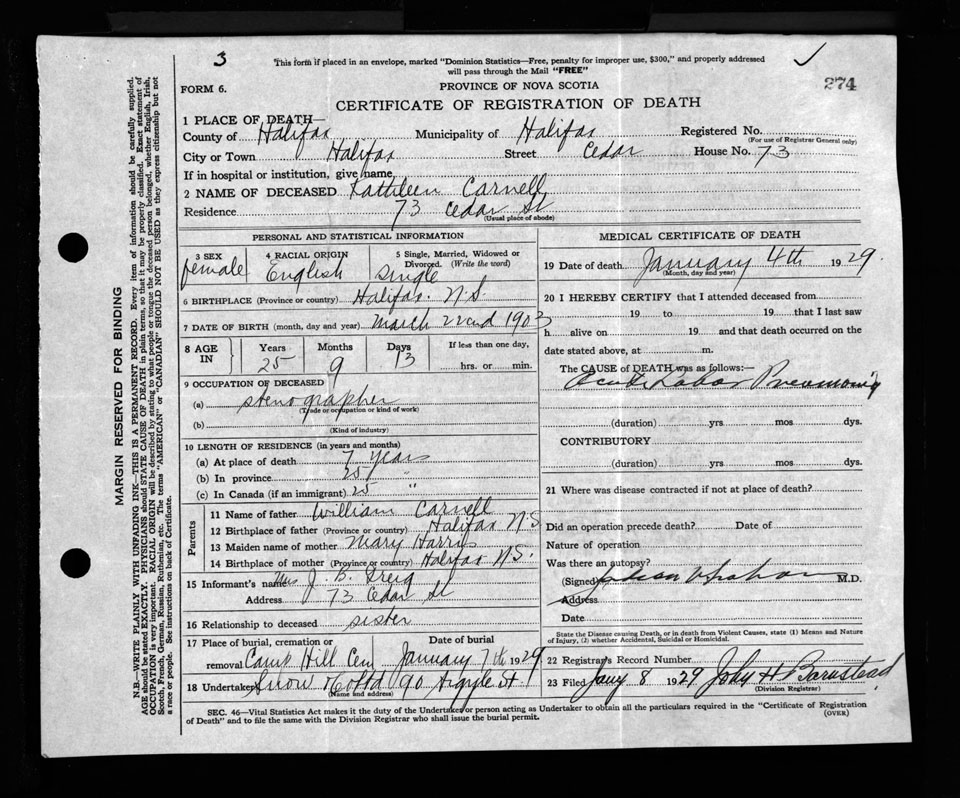 3
This form if placed in an envelope, marked "Dominion Statistics—Free, penalty for improper use, $300," and properly addressed
will pass through the Mail "FREE"
274
FORM 6.
PROVINCE OF NOVA SCOTIA
CERTIFICATE OF REGISTRATION OF DEATH
1 PLACE OF DEATH—
County of Halifax Municipality of Halifax Registered No.
(For use of Registrar General only)
City or Town Halifax Street Cedar House No. 73
If in hospital or institution, give name
2 NAME OF DECEASED Kathleen Carnell
Residence 73 Cedar St
(Usual place of abode)
PERSONAL AND STATISTICAL INFORMATION
3 SEX 4 RACIAL ORIGIN 5 Single, Married, Widowed or
Divorced. (Write the word)
female English single
6 BIRTHPLACE (Province or country) Halifax. N.S.
7 DATE OF BIRTH (month, day and year) March 22nd 1903
8 AGE IN Years Months Days If less than one day,
25 9 13 hrs. or min.
9 OCCUPATION OF DECEASED
(a) stenographer
(Trade or occupation or kind of work)
(b)
(Kind of industry)
10 LENGTH OF RESIDENCE (in years and months)
(a) At place of death 7 years
(b) In province 25 "
(c) In Canada (if an immigrant) 25 "
Parents
11 Name of father William Carnell
12 Birthplace of father (Province or country) Halifax N.S
13 Maiden name of mother Mary Harris
14 Birthplace of mother (Province or country) Halifax N.S.
15 Informant's name Mrs J. B. Greig
Address 73 Cedar St
16 Relationship to deceased sister
17 Place of burial, cremation or Date of burial
removal Camp Hill Cem January 7th 1929
18 Undertaker Snow & Co Ltd 90 Argyle St.
(Name and address)
MEDICAL CERTIFICATE OF DEATH
19 Date of death January 4th 1929
(Month, day and year)
20 I HEREBY CERTIFY that I attended deceased from
19 to 19 that I last saw
h alive on 19 and that death occurred on the
date stated above, at m.
The CAUSE OF DEATH was as follows:—
Acute Lobar Pneumonia
(duration) yrs mos dys.
CONTRIBUTORY
(duration) yrs. mos. dys.
21 Where was disease contracted if not at place of death?
Did an operation precede death? Date of
Nature of operation
Was there an autopsy?
(Signed) M.D.
Address
Date
State the Disease causing Death, or in death from Violent Causes, state (1) Means and Nature
of Injury, (2) whether Accidental, Suicidal or Homicidal.
22 Registrar's Record Number
23 Filed Jany 8 1929 John H Barnstead
(Division Registrar)
SEC. 46—Vital Statistics Act makes it the duty of the Undertaker or person acting as Undertaker to obtain all the particulars required in the "Certificate of Registration
of Death" and to file the same with the Division Registrar who shall issue the burial permit.
(OVER)
MARGIN RESERVED FOR BINDING
N.B.—WRITE PLAINLY WITH UNFADING INK—THIS IS A PERMANENT RECORD. Every item of information should be carefully supplied.
AGE should be stated EXACTLY. PHYSICIANS should STATE CAUSE OF DEATH in plain terms, so that it may be properly classified. Exact statement of
OCCUPATION is very important. RACIAL ORIGIN will be described by stating to what people or tongue the deceased person belonged, whether English, Irish,
Scotch, French, German, Russian, Ruthenian, etc. The terms "AMERICAN" or "CANADIAN" SHOULD NOT BE USED as they express citizenship but not
a race or people. See instructions on back of Certificate.